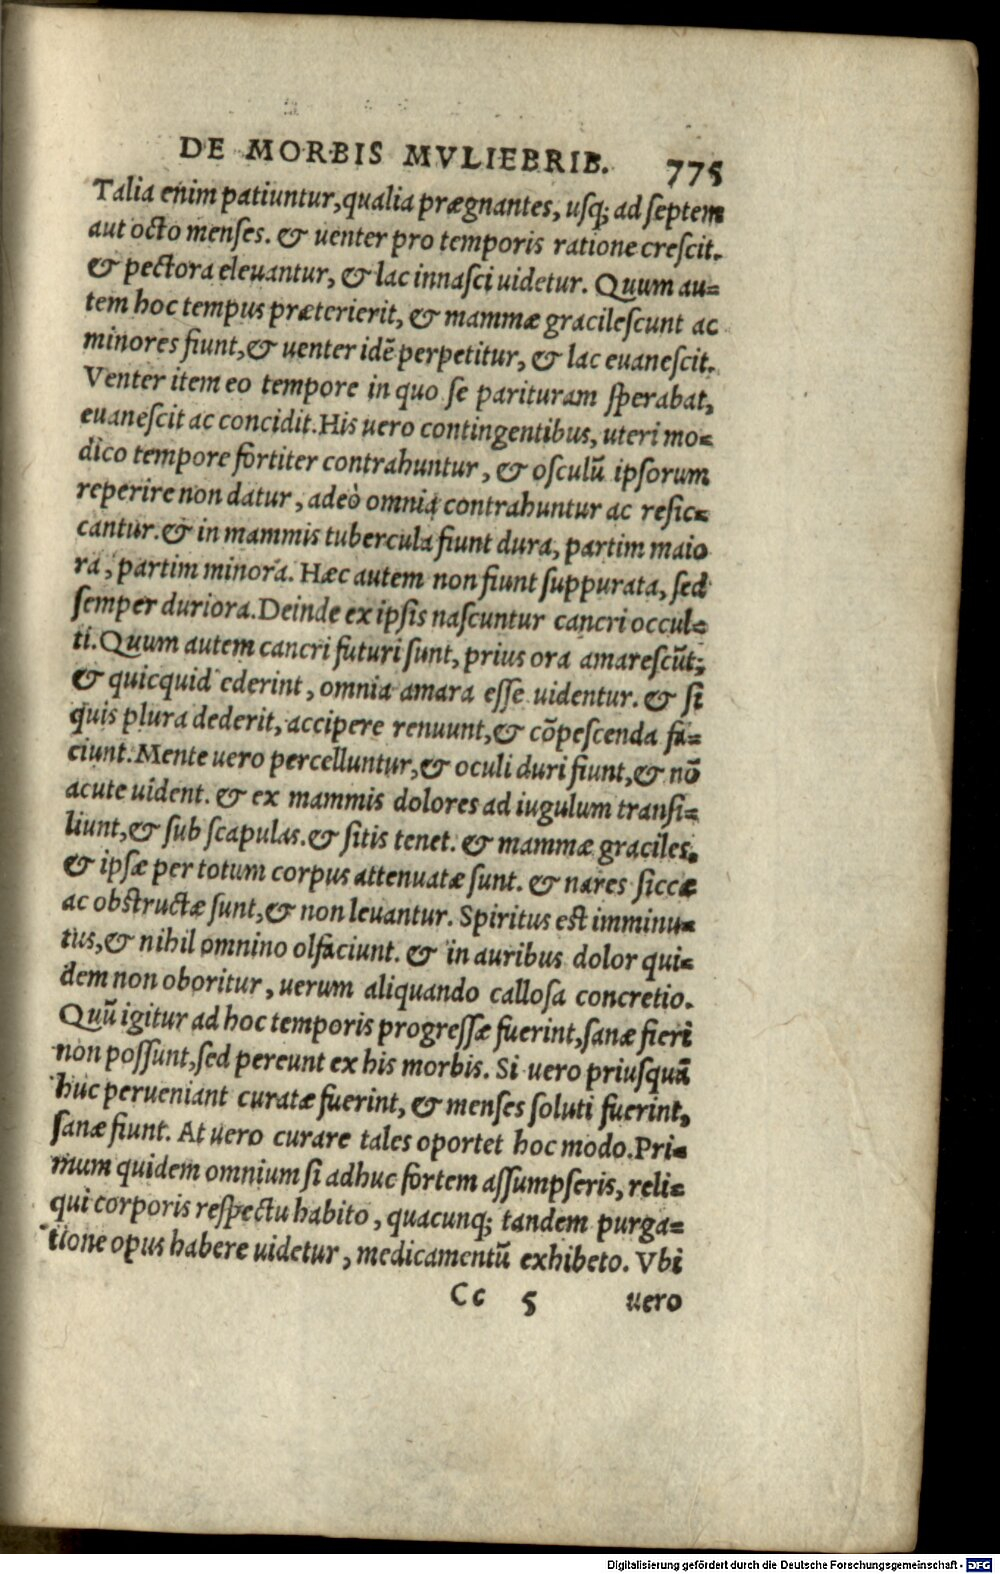 DE MORBIS MVLIEBRIB. 775
Talia enim patiuntur, qualia prægnantes, usq; ad ſeptem
aut octo menſes. & uenter pro temporis ratione creſcit.
& pectora eleuantur, & lac innaſci uidetur. Quum au=
tem hoc tempus præterierit, & mammæ gracileſcunt ac
minores fiunt, & uenter idẽ perpetitur, & lac euaneſcit.
Venter item eo tempore in quo ſe parituram ſperabat,
euaneſcit ac concidit. His uero contingentibus, uteri mo=
dico tempore fortiter contrahuntur, & oſculũ ipſorum
reperire non datur, adeò omnia contrahuntur ac reſic=
cantur. & in mammis tubercula fiunt dura, partim maio
ra, partim minora. Hæc autem non fiunt ſuppurata, ſed
ſemper duriora. Deinde ex ipſis naſcuntur cancri occul=
ti. Quum autem cancri futuri ſunt, prius ora amareſcũt;
& quicquid ederint, omnia amara eſſe uidentur. & ſi
quis plura dederit, accipere renuunt, & cõpeſcenda fa=
ciunt. Mente uero percelluntur, & oculi duri fiunt, & nõ
acute uident. & ex mammis dolores ad iugulum tranſi=
liunt, & ſub ſcapulas. & ſitis tenet. & mammæ graciles.
& ipſæ per totum corpus attenuatæ ſunt. & nares ſiccæ
ac obſtructæ ſunt, & non leuantur. Spiritus eſt imminu=
tus, & nihil omnino olfaciunt. & in auribus dolor qui=
dem non oboritur, uerum aliquando calloſa concretio.
Quũ igitur ad hoc temporis progreſſæ fuerint, ſanæ fieri
non poſſunt, ſed pereunt ex his morbis. Si uero priuſquã
huc perueniant curatæ fuerint, & menſes ſoluti fuerint,
ſanæ fiunt. At uero curare tales oportet hoc modo. Pri=
mum quidem omnium ſi adhuc fortem aſſumpſeris, reli=
qui corporis reſpectu habito, quacunq; tandem purga=
tione opus habere uidetur, medicamentũ exhibeto. Vbi
Cc 5 uero
Digitalisierung gefördert durch die Deutsche Forschungsgemeinschaft - DFG